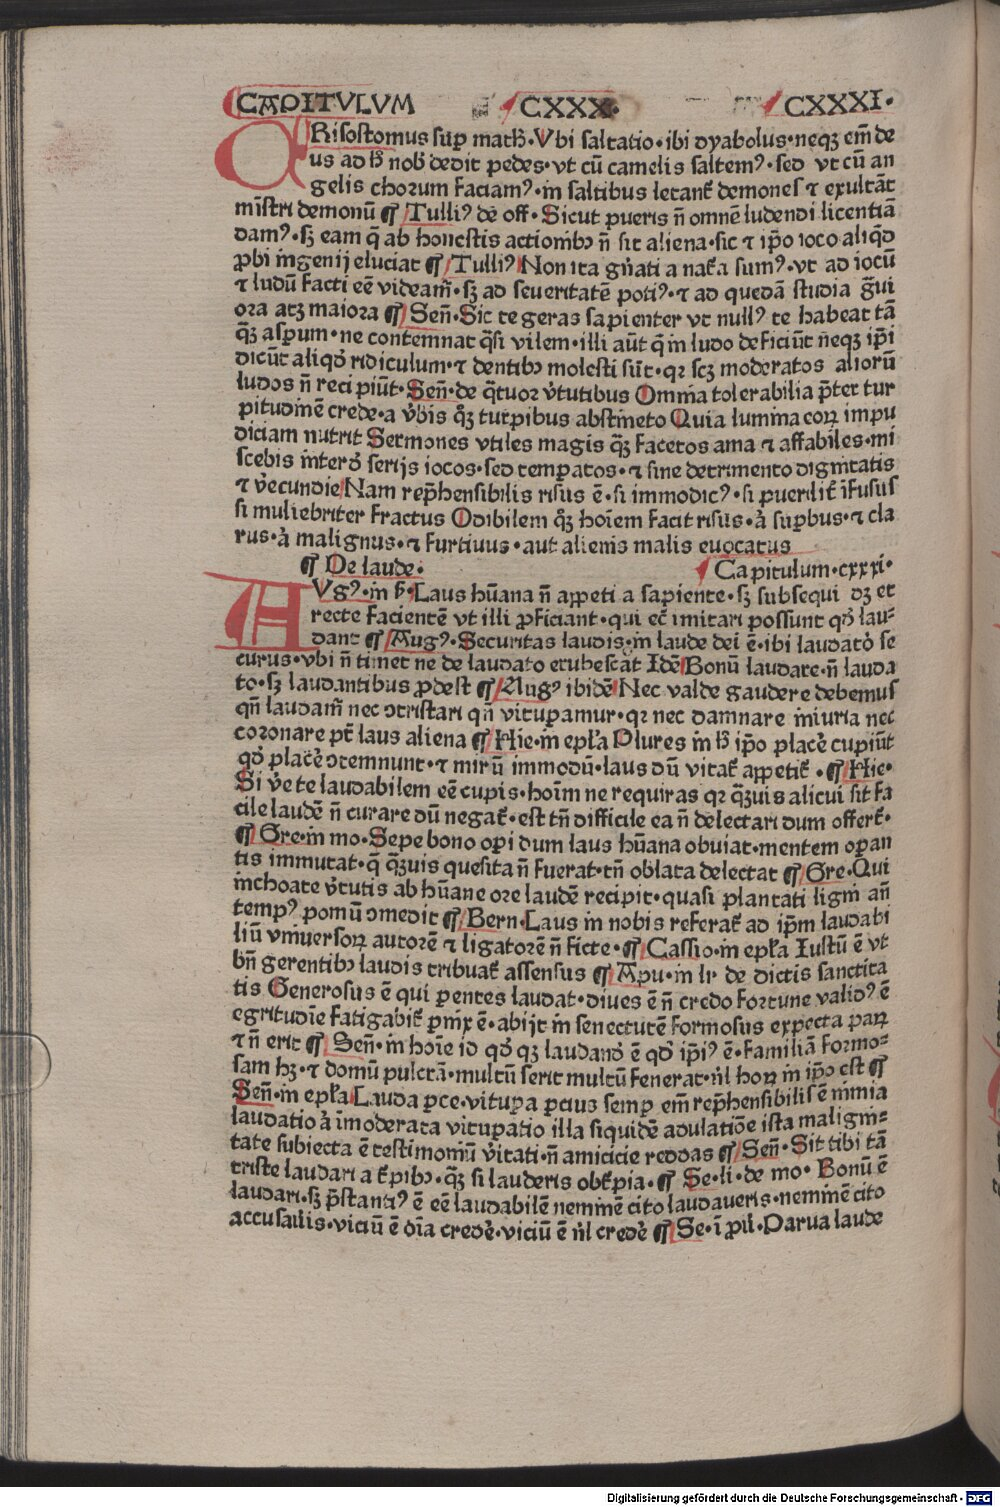 CAPITVLVM CXXX· CXXXI·
CRisostomus sup math̄·Vbi saltatio·ibi dyabolus·neqꝫ em̄ de
us ad h̄ nob̄ dedit pedes·vt cū camelis saltemꝰ·sed vt cū an
gelis chorum faciamꝰ·in saltibus letant̄ demones ⁊ exultāt
mīstri demonū ¶ Tulliꝰ de off·Sicut pueris n̄ omnē ludendi licentiā
damꝰ·sꝫ eam q̄ ab honestis actionibꝰ n̄ sit aliena·sic ⁊ ip̄o ioco aliq̄d
ꝓbi ingenij eluciat ¶ Tulliꝰ Non ita gn̄ati a nat̄a sumꝰ·vt ad iocū
⁊ ludū facti eē videam̄·sꝫ ad seueritatē potiꝰ·⁊ ad quedā studia g̃ui
ora atqꝫ maiora ¶ Sen̄·Sic te geras sapienter vt nullꝰ te habeat tā
q̄ꝫ asꝑum·ne contemnat q̄si vilem·illi aūt q̄ in ludo deficiūt neqꝫ ip̄i
dicūt aliqd̄ ridiculum·⁊ dentibꝰ molesti sūt·qꝛ scꝫ moderatos aliorū
ludos n̄ recipiūt·Sen̄·de q̄tuor v̄tutibus Omnia tolerabilia p̄ter tur
pitudinē crede·a v̄bis q̄ꝫ turpibus abstineto Quia lumina coꝝ impu
diciam nutrit Sermones vtiles magis q̄ꝫ facetos ama ⁊ affabiles·mi
scebis interd̄ serijs iocos·sed temꝑatos·⁊ sine detrimento dignitatis
⁊ v̄ecundie Nam rep̄hensibilis risus ē·si immodicꝰ·si puerilit̄ īfusus
si muliebriter fractus Odibilem q̄ꝫ hoīem facit risus·a᷑ suꝑbus·⁊ cla
rus·a᷑ malignus·⁊ furtiuus·aut alienis malis euocatus
¶ De laude· Capitulum·cxxxi·
AVgꝰ·in ẜ·Laus hūana n̄ appeti a sapiente·sꝫ subsequi dꝫ et
recte facientē vt illi ꝓficiant·qui ec̄ imitari possunt qd̄ lau-
dant ¶ Augꝰ·Securitas laudis·in laude dei ē·ibi laudato᷑ se
curus·vbi n̄ timet ne de laudato erubescat Idē Bonū laudare·n̄ lauda
to·sꝫ laudantibus ꝓdest ¶ Augꝰ ibidē Nec valde gaudere debemus
qn̄ laudam̄ nec ↄtristari qn̄ vituꝑamur·qꝛ nec damnare iniuria nec
coronare pt̄ laus aliena ¶ Hie·in ep̄la Plures in h̄ ip̄o place᷑ cupiūt
qd̄ place᷑ ↄtemnunt·⁊ mirū immodū·laus dū vitat̄ appetit̄·¶ Hie·
Si v̄e te laudabilem eē cupis·hoīm ne requiras qꝛ q̄ꝫuis alicui sit fa
cile laudē n̄ curare dū negat̄·est tn̄ difficile ea n̄ delectari dum offert̄·
¶ Gre·in mo·Sepe bono oꝑi dum laus hūana obuiat·mentem oꝑan
tis immutat·q̄ q̄ꝫuis quesita n̄ fuerat·tn̄ oblata delectat ¶ Gre·Qui
inchoate v̄tutis ab hūane ore laudē recipit·quasi plantati ligni an̄
tempꝰ pomū ↄmedit ¶ Bern·Laus in nobis referat̄ ad ip̄m laudabi
liū vniuersoꝝ autorē ⁊ ligatorē n̄ ficte·¶ Cassio·in ep̄la Iustū ē vt
bn̄ gerentibꝰ laudis tribuat̄ assensus ¶ Apu·in lr de dictis sanctita
tis Generosus ē qui ꝑentes laudat·diues ē n̄ credo fortune validꝰ ē
egritudīe fatigabit̄ ꝑnix ē·abijt in senectutē formosus expecta paꝝ
⁊ n̄ erit ¶ Sen̄·in hoīe id qd̄ qꝫ laudand̄ ē qd̄ ip̄iꝰ ē·Familiā formo-
sam hꝫ·⁊ domū pulcrā·multū serit multū fenerat·nl̄ hoꝝ in ip̄o est ¶
Sen̄·in ep̄la Lauda ꝑce·vituꝑa ꝑtius semꝑ em̄ rep̄hensibilis ē nimia
laudatio a᷑ īmoderata vituꝑatio illa siquidē adulatiōe ista maligni-
tate subiecta ē testimoniū v̄itati·n̄ amicicie reddas ¶ Sen̄·Sit tibi tā
triste laudari a t̄pibꝰ·q̄ꝫ si lauderis ob t̄pia·¶ Se·li·de mo·Bonū ē
laudari·sꝫ p̄stantiꝰ ē eē laudabilē neminē cito laudaueris·neminē cito
accusauis·viciū ē oīa crede᷑·viciū ē nl̄ crede᷑ ¶ Se·ī ꝓu̇·Parua laude
Digitalisierung gefördert durch die Deutsche Forschungsgemeinschaft - DFG